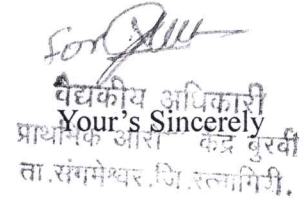 For
वैद्यकीय अधिकारी
Your's Sincerely
प्राथमिक आरो केंद्र बुरंबी
ता.संगमेश्वर.जि.रत्नागिरी.